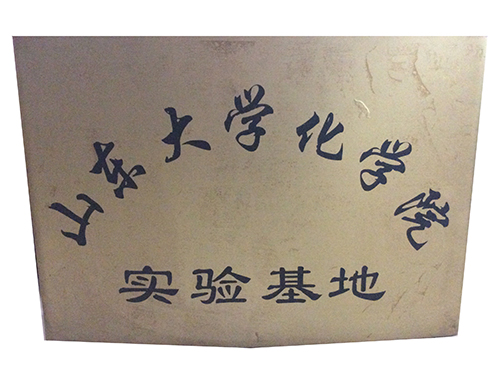 山东大学化学院
实验基地